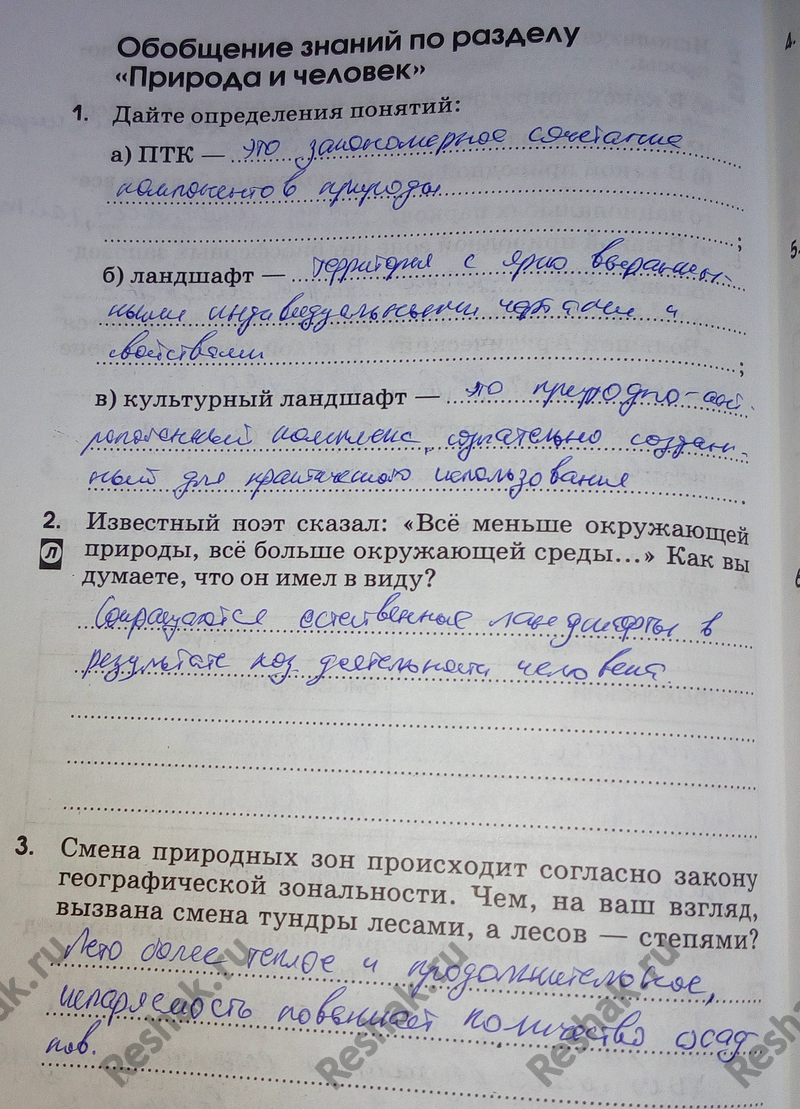 Обобщение знаний по разделу
«Природа и человек»
1. Дайте определения понятий:
а) ПТК — это закономерное сочетание
компонентов природы
;
б) ландшафт — территория с ярко выражен-
ными индивидуальными чертами и
свойствами ;
в) культурный ландшафт — это природно-ант
ропогенный комплекс, сознательно создан-
ный для практического использования .
2. Известный поэт сказал: «Всё меньше окружающей
л природы, всё больше окружающей среды...» Как вы
думаете, что он имел в виду?
Сокращаются естественные ландшафты в
результате хоз деятельности человека.
3. Смена природных зон происходит согласно закону
географической зональности. Чем, на ваш взгляд,
вызвана смена тундры лесами, а лесов — степями?
Лето более теплое и продолжительное,
испаряемость повышает количество осад
ков.
Reshak.ru
Reshak.ru
Reshak.ru
4.
5.
6